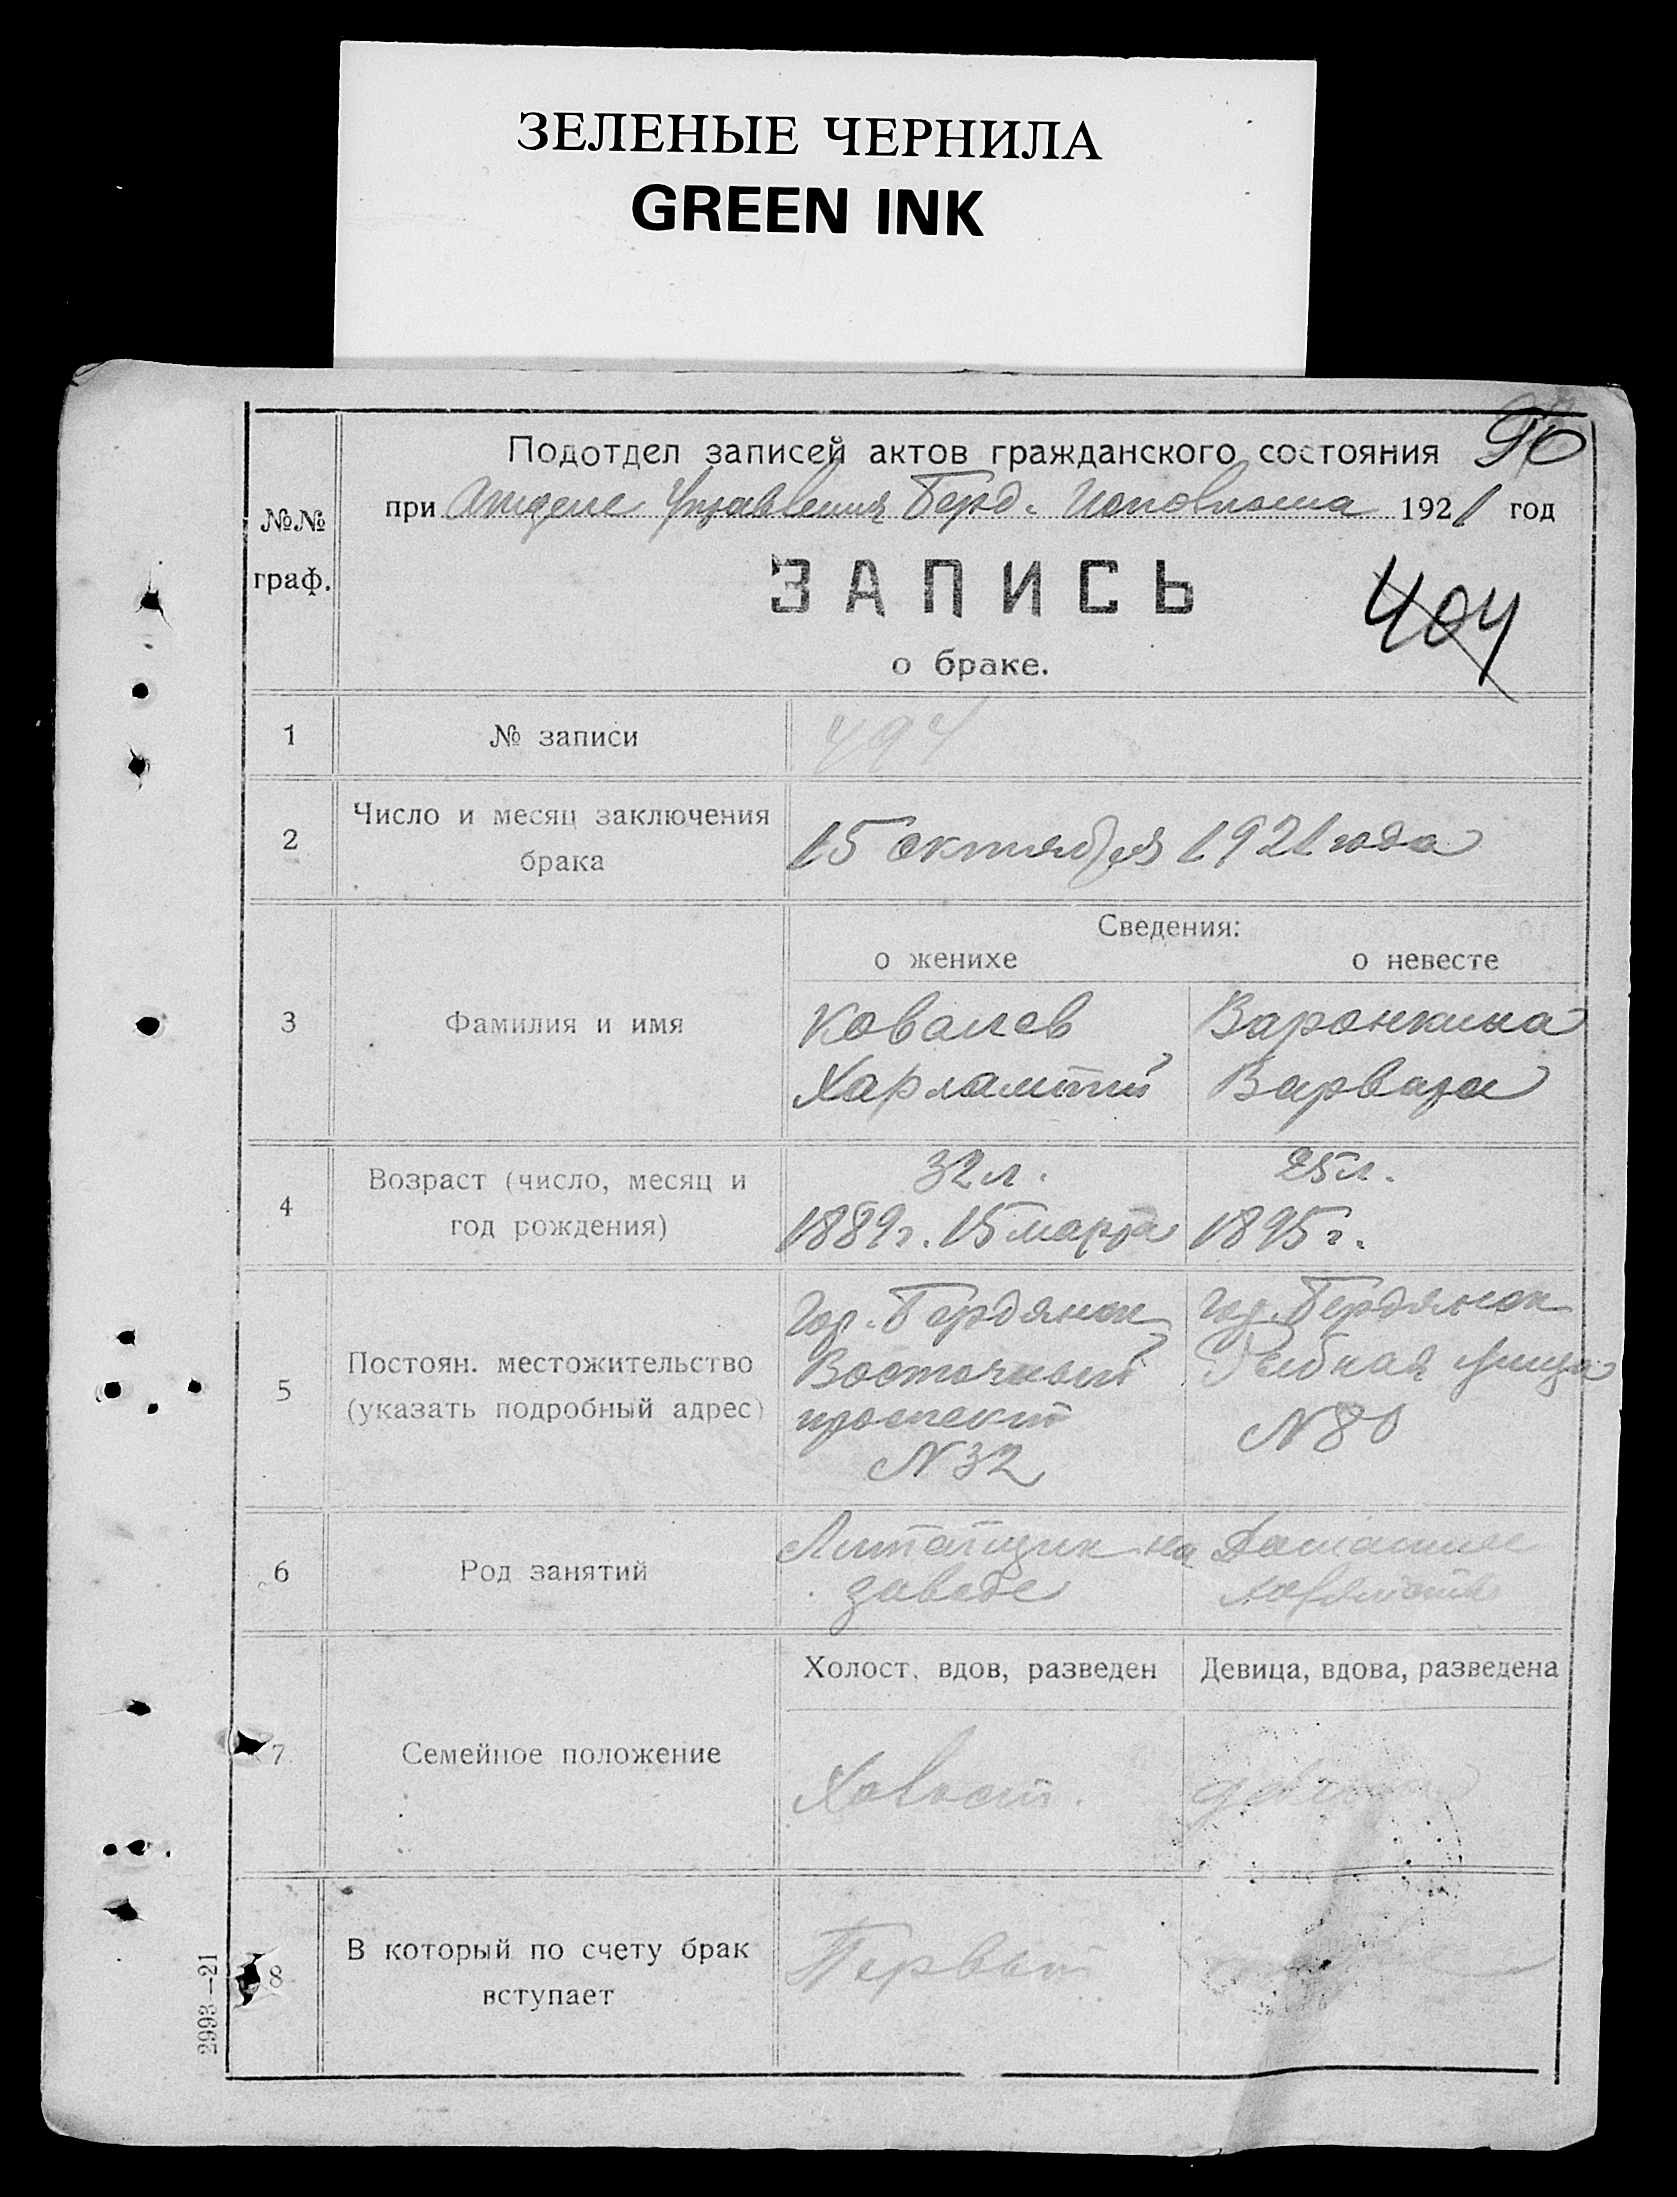 ЗЕЛЕНЫЕ ЧЕРНИЛА
GREEN INK
90
Подотдел записей актов гражданского состояния
при Отделе Управления Берд. Исполкома 1921 год
№№
граф.
ЗАПИСЬ
о браке.
404
1 № записи 494
2 Число и месяц заключения
брака
15 октября 1921 года
Сведения:
о женихе о невесте
3 Фамилия и имя
Ковалев Варонкина
Харлампий Варвара
4 Возраст (число, месяц и
год рождения)
32 л. 25 л.
1889 г. 15 марта 1895 г.
5 Постоян. местожительство
(указать подробный адрес)
Гор. Бердянск Гор. Бердянск
Восточный улица
проспект N 80
N 32
6 Род занятий
на Домашнее
заводе хозяйство
Холост, вдов, разведен Девица, вдова, разведена
7 Семейное положение
Холост. девица
8 В который по счету брак
вступает
Первый
2993—21